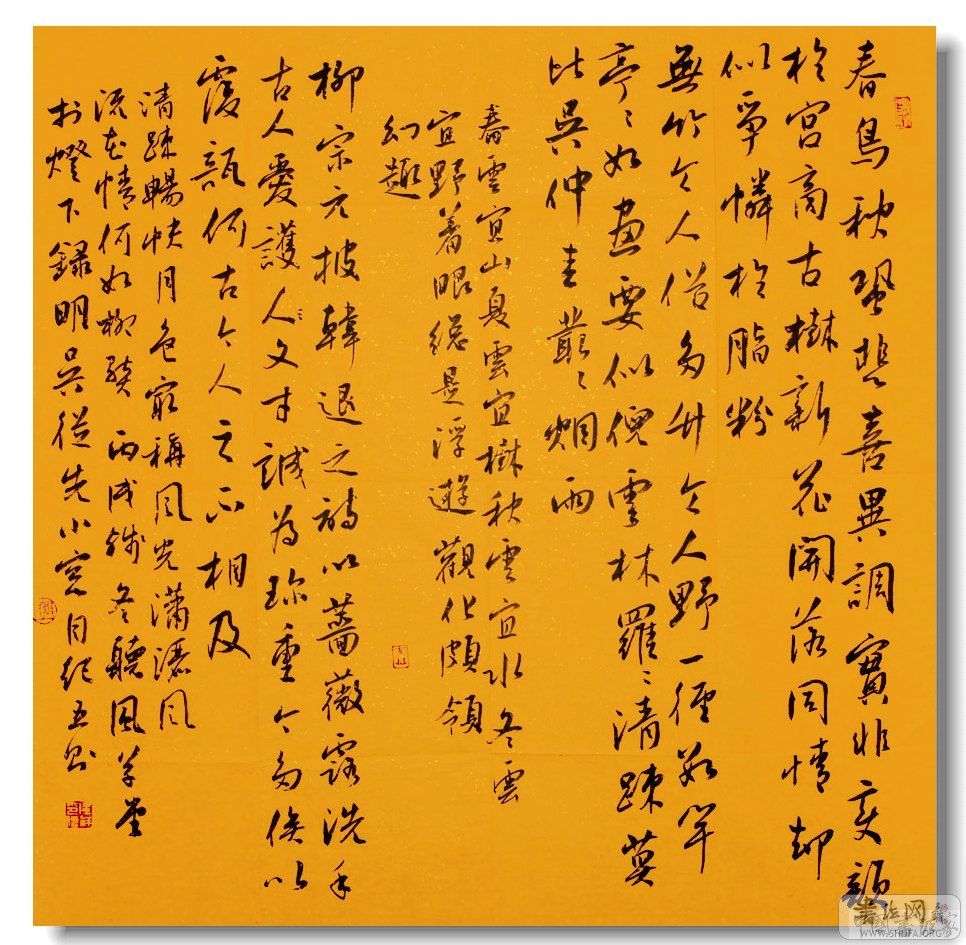 春鳥秋蛩悲喜異調實非變韻
於宮商古樹新花開落同情却
似爭憐於脂粉
無竹令人俗多竹令人野一徑數竿
亭亭如畫要似倪雲林羅羅清疎莫
比吳仲圭叢叢烟雨
春雲宜山夏雲宜樹秋雲宜水冬雲
宜野着眼總是浮遊觀化頗領
幻趣
柳宗元披韓退之詩以薔薇露洗手
古人愛護人文才誠為珍重今多俟以
覆瓿何古今人之不相及
清疎暢快月色最稱風光瀟灑風
流花情何如柳態丙戌殘冬聽風草堂
於燈下錄明吳從先小窓自紀五則
書法网
WWW.SHUFA.ORG